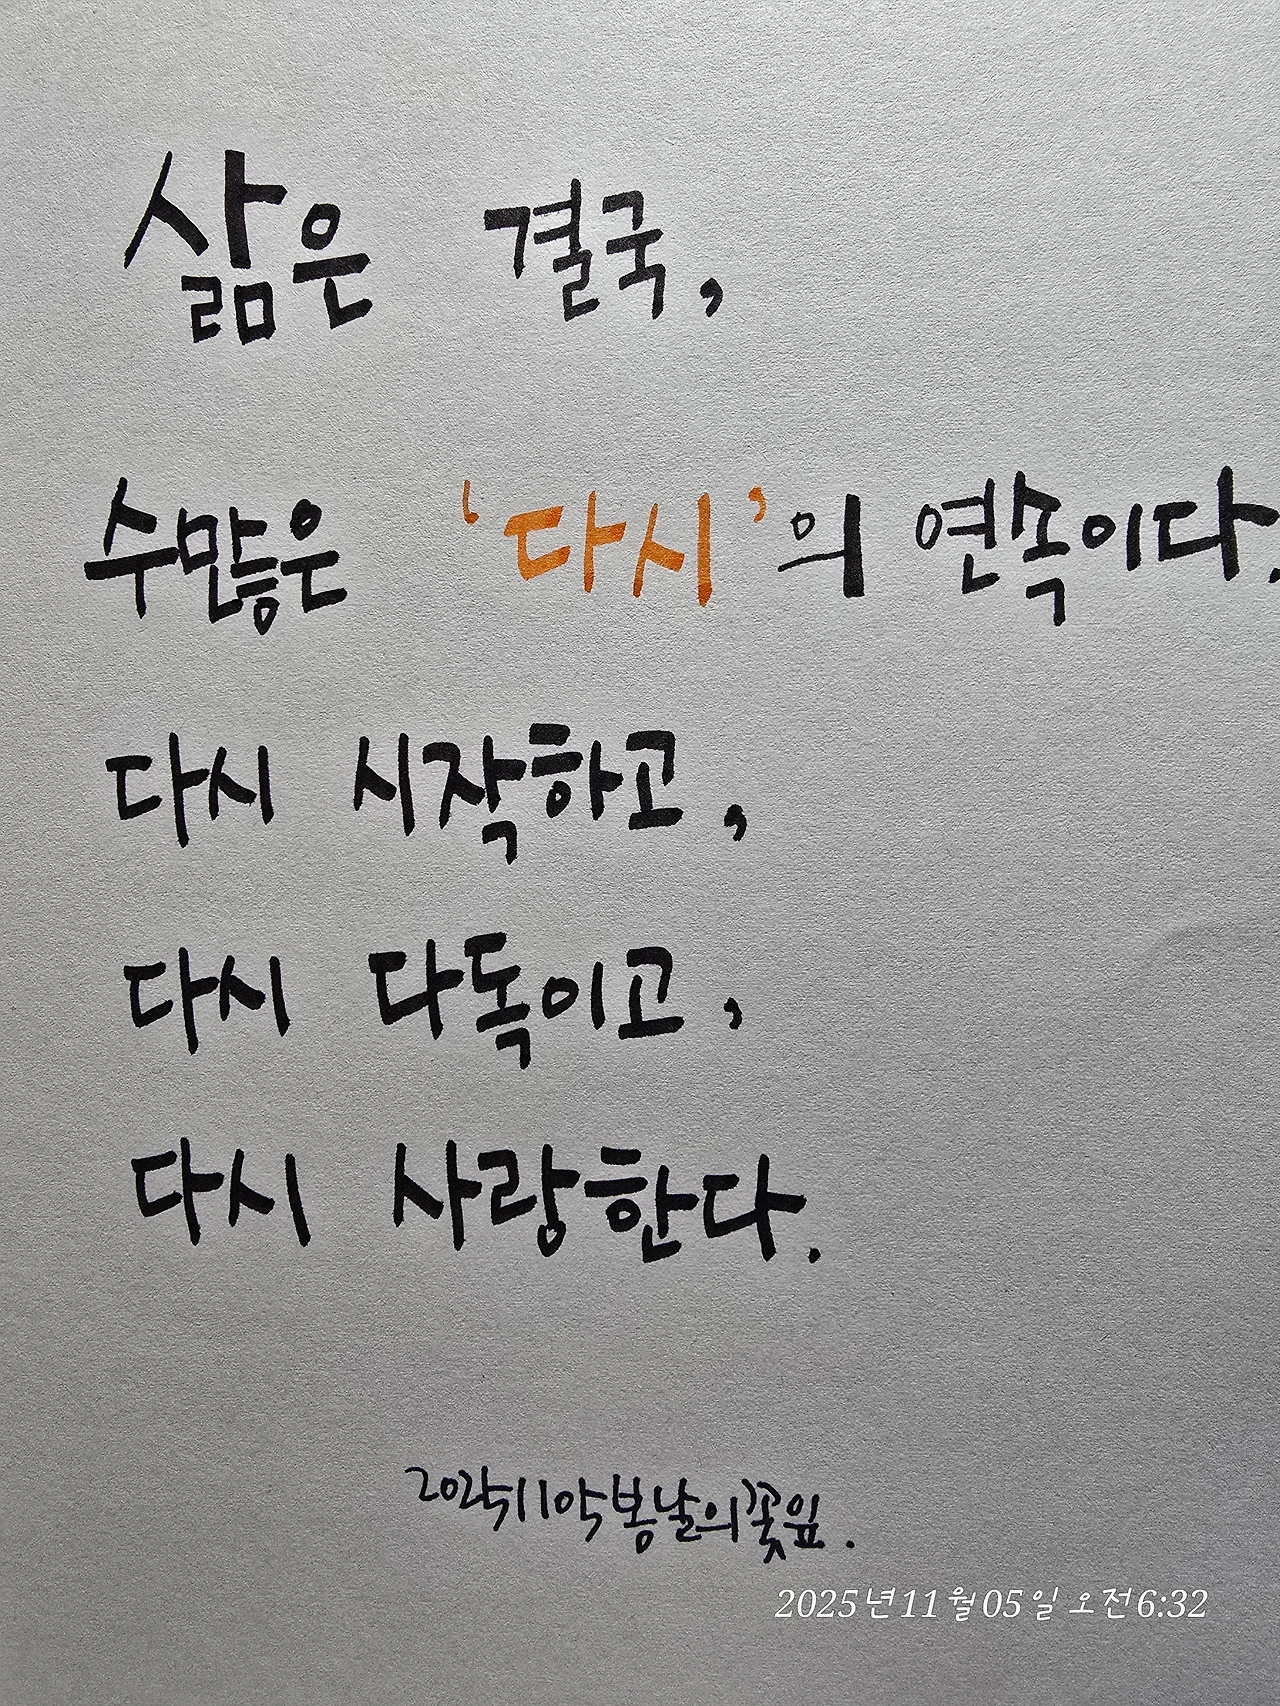 삶은 결국,
수많은 '다시'의 연속이다.
다시 시작하고,
다시 다독이고,
다시 사랑한다.
봄날의꽃잎.
2025년11월05일 오전6:32